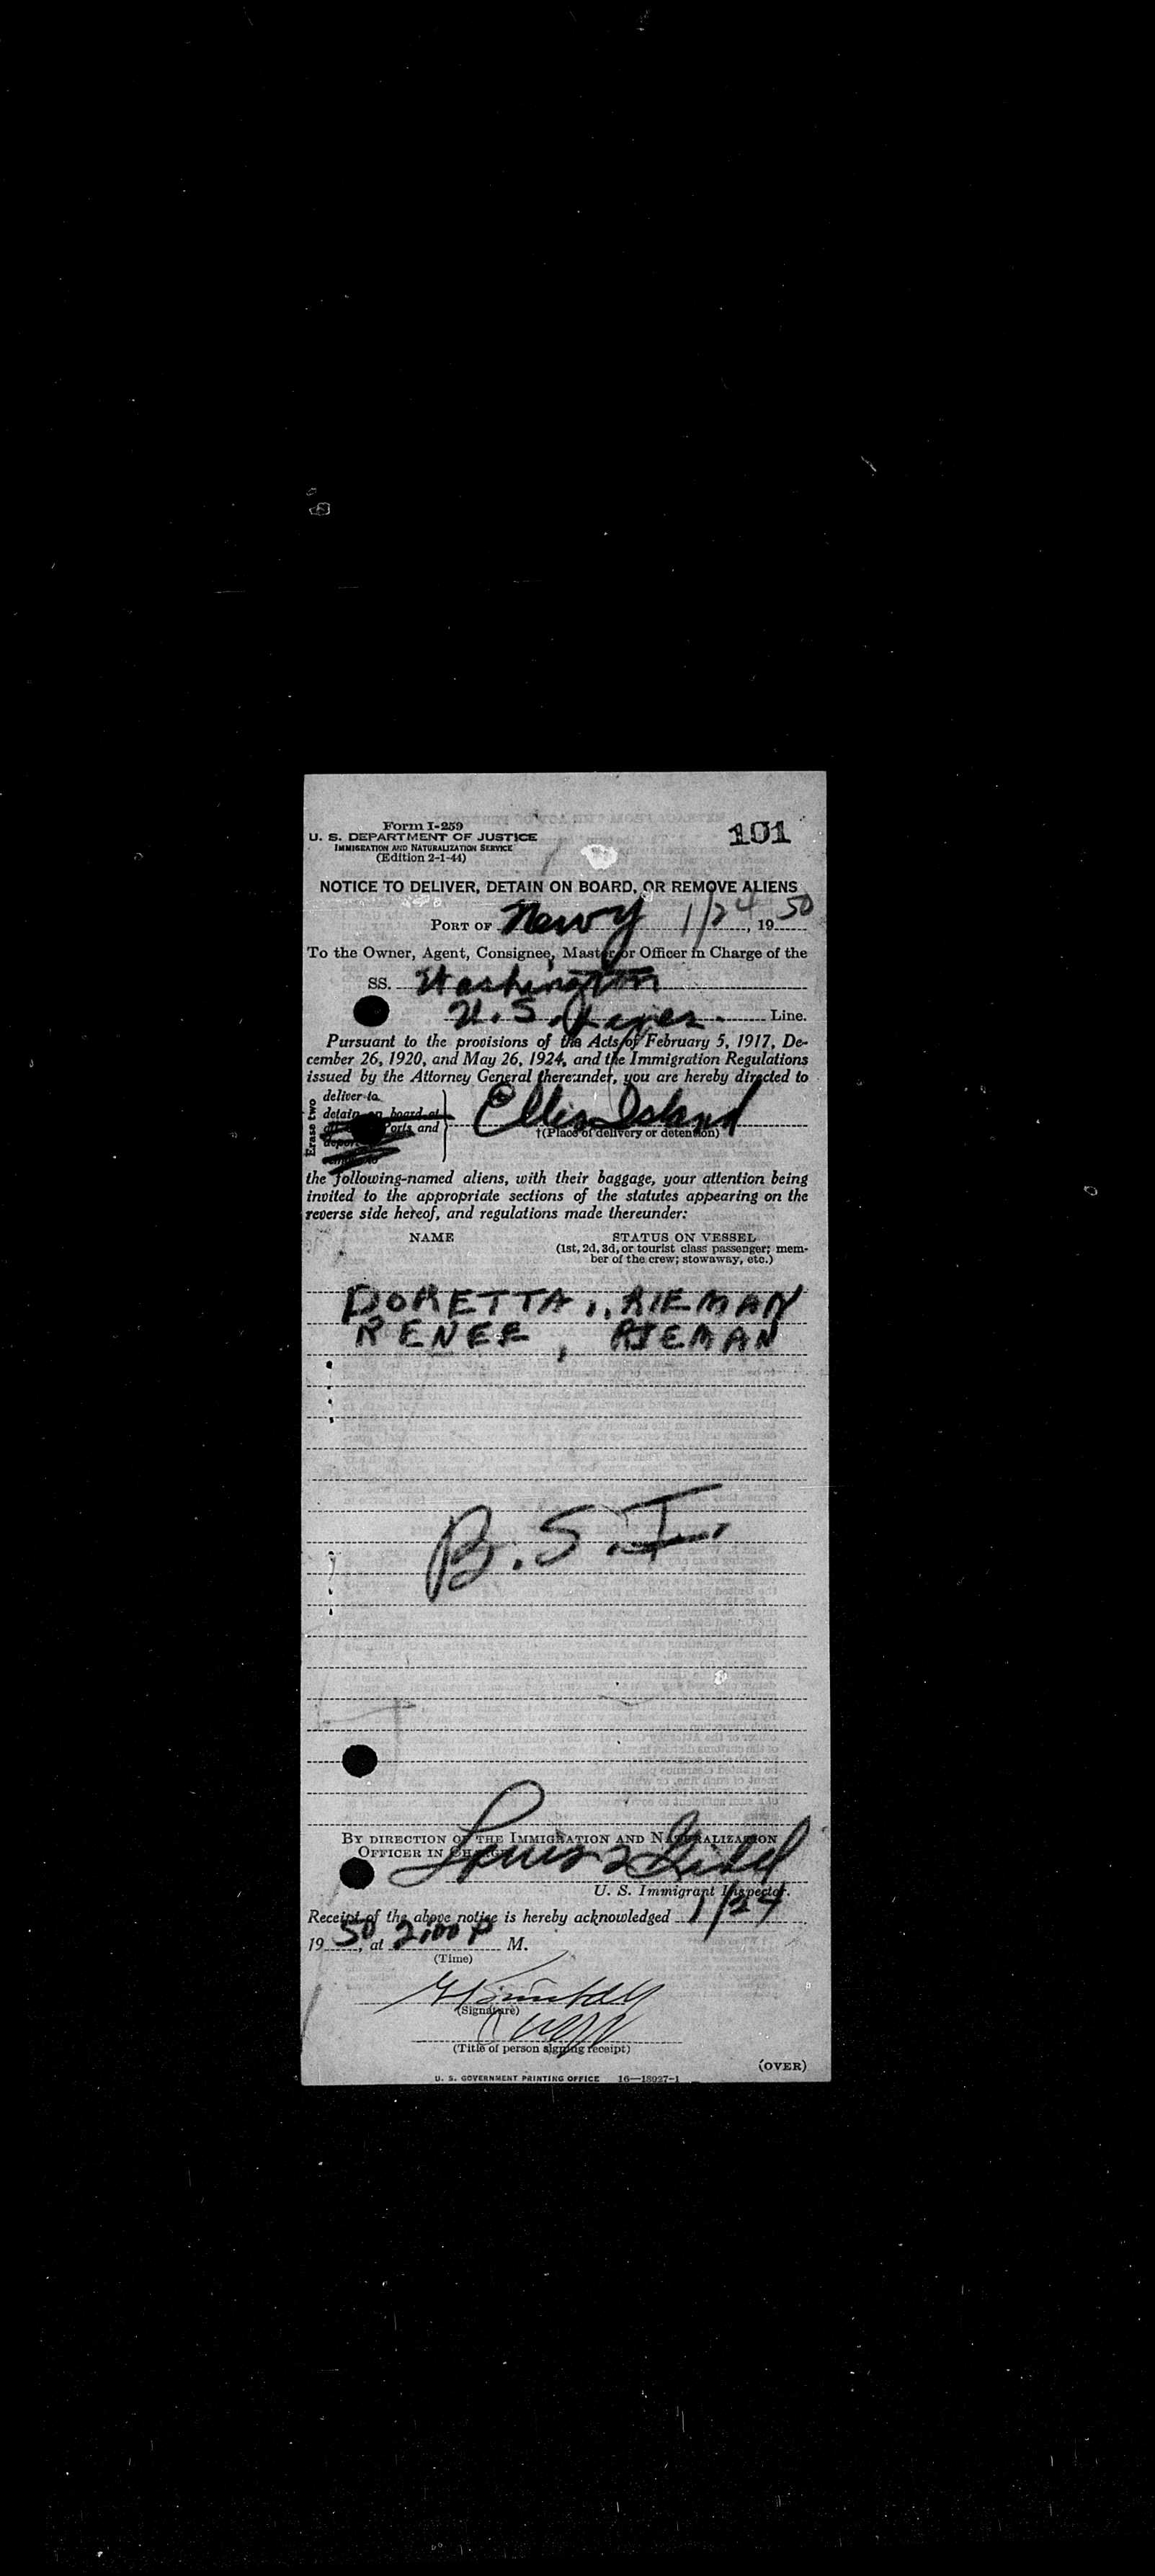 Form I-259
101
U. S. DEPARTMENT OF JUSTICE
IMMIGRATION AND NATURALIZATION SERVICE
(Edition 2-1-44)
NOTICE TO DELIVER, DETAIN ON BOARD, OR REMOVE ALIENS
PORT OF New Y 1/24, 19 50
To the Owner, Agent, Consignee, Master or Officer in Charge of the
SS. Washington
U.S. Lines Line.
Pursuant to the provisions of the Acts of February 5, 1917, De-
cember 26, 1920, and May 26, 1924, and the Immigration Regulations
issued by the Attorney General thereunder, you are hereby directed to
Erase two
deliver to
detain on board at
and
Ellis Island
†(Place of delivery or detention)
the following-named aliens, with their baggage, your attention being
invited to the appropriate sections of the statutes appearing on the
reverse side hereof, and regulations made thereunder:
NAME STATUS ON VESSEL
(1st, 2d, 3d, or tourist class passenger; mem-
ber of the crew; stowaway, etc.)
DORETTA, RIEMAN
RENEE, RIEMAN
B.S.I.
BY DIRECTION OF THE IMMIGRATION AND NATURALIZATION
OFFICER IN CHARGE
U. S. Immigrant Inspector.
Receipt of the above notice is hereby acknowledged 1/24
19 50, at 2:00 P M.
(Time)
(Signature)
(Title of person signing receipt)
(OVER)
U. S. GOVERNMENT PRINTING OFFICE 16—18027-1